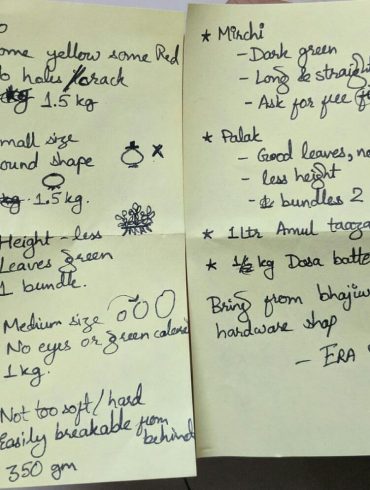 some yellow some Red
no holes / crack
1.5 kg
small size
round shape
1.5 kg.
Height - less
Leaves green
1 bundle.
Medium size
No eyes or green
1 kg.
Not too soft / hard
Easily breakable from
behind
350 gm
* Mirchi
- Dark green
- Long & straight
- Ask for free
* Palak
- Good leaves,
- less height
- bundles 2
* 1 ltr Amul taaza
* 1/2 kg Dosa batter
Bring from
hardware shop
- ERA